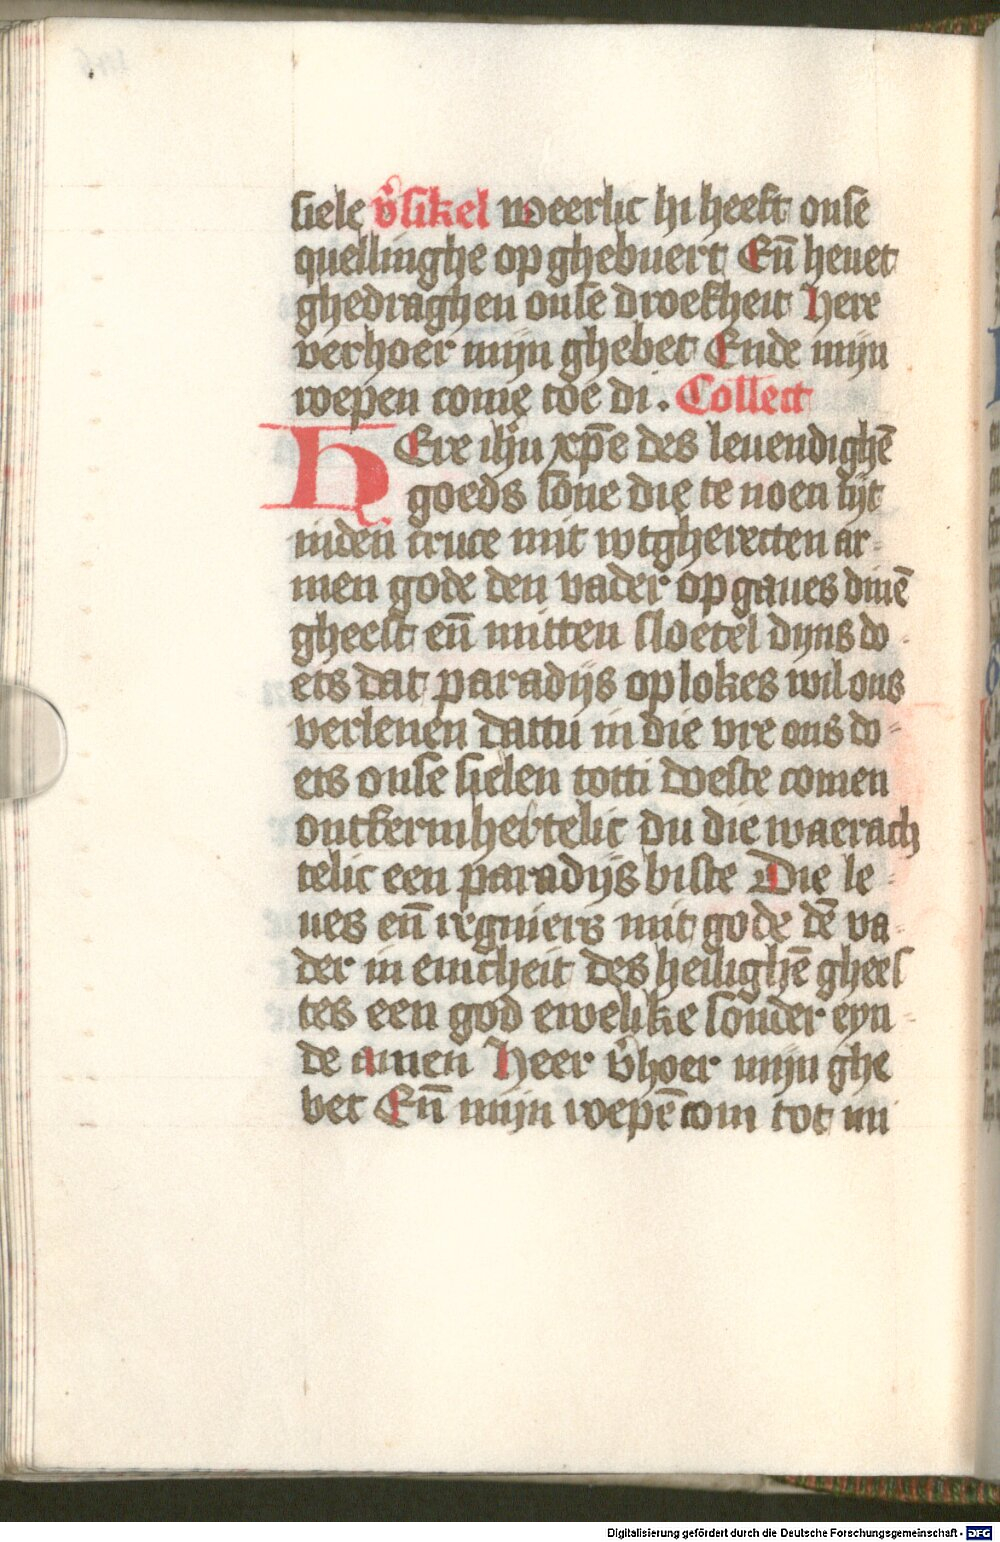 siele v̾sikel weerlic hi heeft onse
quellinghe op ghebuert En̄ heuet
ghedraghen onse droefheit Here
verhoer mijn ghebet Ende mijn
roepen come toe di . Collect
HEre ih̄u xp̄e des leuendighē
goeds sone die te noen tijt
inden cruce mit wtgherecten ar-
men gode den vader op gaues dinē
gheest en̄ mitten sloetel dijns do-
ets dat paradijs oplokes wil ons
verlenen dattu in die vre ons do-
ets onse sielen totti doeste comen
ontfermhertelic du die waerach
telic een paradijs biste Die le-
ues en̄ regniers mit gode dē va-
der in enicheit des heilighē ghees
tes een god ewelike sonder eyn-
de amen Heer v̾hoer mijn ghe
bet En̄ mijn roepē com tot mi
Digitalisierung gefördert durch die Deutsche Forschungsgemeinschaft - DFG